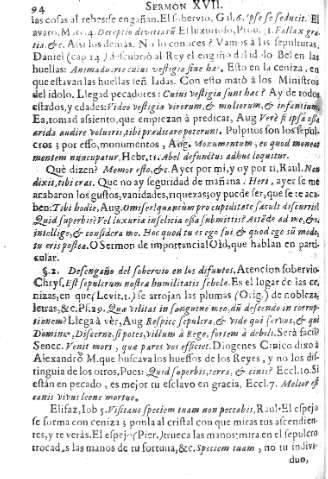 94 SERMON XVII.
las cosas al rebes: se engañan. El sobervio, Gal. 6. Ipse se seducit. El
avaro, Mat. 4. Deceptio divitiarũ. El luxurioso, Prov. 31. Fallax gra-
tia, &c. Assi los demas. No lo conoces? Vamos à las sepulturas,
Daniel (cap. 14.) descubriò al Rey el engaño del idolo Bel en las
huellas: Animadverte cuius vestigia sint hæc, Esto en la ceniza, en
que estavan las huellas señaladas. Con esto matò à los Ministros
del idolo. Llegad pecadores: Cuius vestigia sunt hæc? Ay de todos
estados, y edades: Video vestigia virorum, & mulierum, & infantium,
Ea, tomad assiento, que empiezan à predicar, Aug. Verè si ipsa ossa
arida audire volueris, tibi prædicare poterunt. Pulpitos son los sepul-
cros; por esso, monumentos, Aug. Monumentum, eo quod moneat
mentem nuncupatur, Hebr. 11. Abel defunctus adhuc loquitur.
Què dizen? Memor esto, &c. Ayer por mi, y oy por ti, Raul. Non
dixit, tibi cras. Que no ay seguridad de mañana. Heri, ayer se me
acabaron los gustos, vanidades, riquezas; oy puede ser, que se te aca-
ben: Tibi hodie, Aug. O miser! quantum pro cupiditate sæculi discurris!
Quid superbis? Vel luxuria infelicia ossa submittis? Attẽde ad me, &
intellige, & considera me. Hoc quod tu es ego fui & quod ego sũ modò,
tu eris postea. O Sermon de importancia! Oid, que hablan en parti-
cular.
§. 2. Desengaño del sobervio en los difuntos. Atencion sobervio
Chrys. Est sepulcrum nostræ humilitatis schola. Es el lugar de las ce-
nizas, en que (Levit. 1.) se arrojan las plumas (Orig.) de nobleza,
letras, &c. Ps. 29. Quæ vtilitas in sanguine meo, dũ descendo in corrup-
tionem? Llega à vèr, Aug. Respice sepulcra, & vide quis servus, & quis
Dominus, Discerne, si potes, villum à Rege, fortem à debili. Serà facil?
Senec. Venit mors, quæ pares vos efficeret. Diogenes Cinico dixo à
Alexandro M. que buscava los huessos de los Reyes, y no los dis-
tinguia de los otros, Pues: Quid superbis, terra, & cinis? Eccl. 10. Si
estàn en pecado, es mejor tu esclavo en gracia, Eccl. 7. Melior est
canis vivus leone mortuo.
Elifaz, Iob 5. Visitans speciem tuam non peccabis, Raul. El espejo
se forma con ceniza; ponla al cristal con que miras tus ascendien-
tes, y te veràs. El espejo (Pier.) trueca las manos; mira en el sepulcro
trocadas las manos de tu fortuna, &c. Speciem tuam, no tu indivi-
duo,